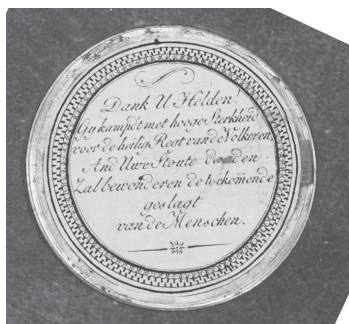 Dank U Helden!
Gy kampdt met hooge Sterkheid
voor de heilig Regt van de Volkeren,
And Uwe Stoute daaden
Zal bewonderen de te komende
geslagt
van de Menschen.